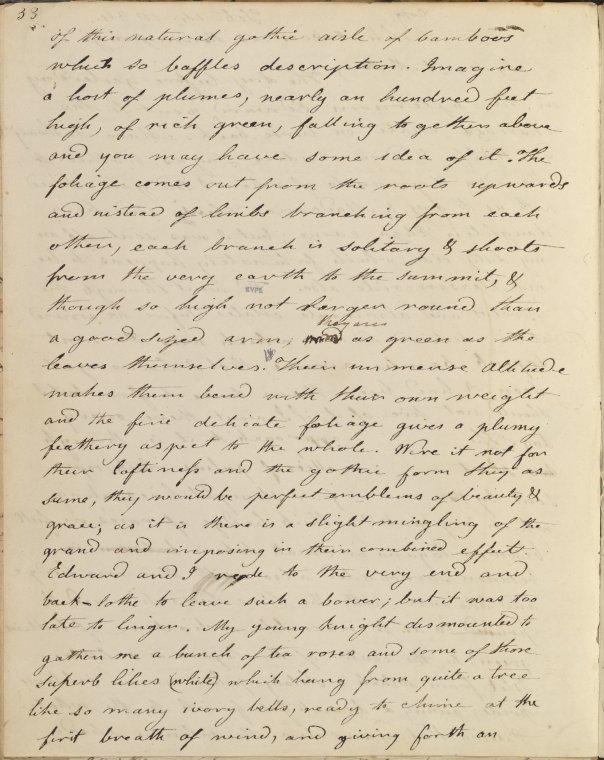 33
of this natural gothic aisle of bamboos
which so baffles description. Imagine
a host of plumes, nearly an hundred feet
high, of rich green, falling together above
and you may have some idea of it. The
foliage comes out from the roots upwards
and instead of limbs branching from each
other, each branch is solitary & shoots
from the very earth to the summit, &
though so high not larger round than
they are
a good sized arm; as green as the
leaves themselves. Their immense altitude
makes them bend with their own weight
and the fine delicate foliage gives a plumy
feathery aspect to the whole. Were it not for
their loftiness and the gothic form they as
sume, they would be perfect emblems of beauty &
grace; as it is there is a slight mingling of the
grand and imposing in their combined effect.
Edward and I rode to the very end and
back - lothe to leave such a bower; but it was too
late to linger. My young knight dismounted to
gather me a bunch of tea roses and some of those
superb lilies (white) which hang from quite a tree
like so many ivory bells, ready to chime at the
first breath of wind, and giving forth an